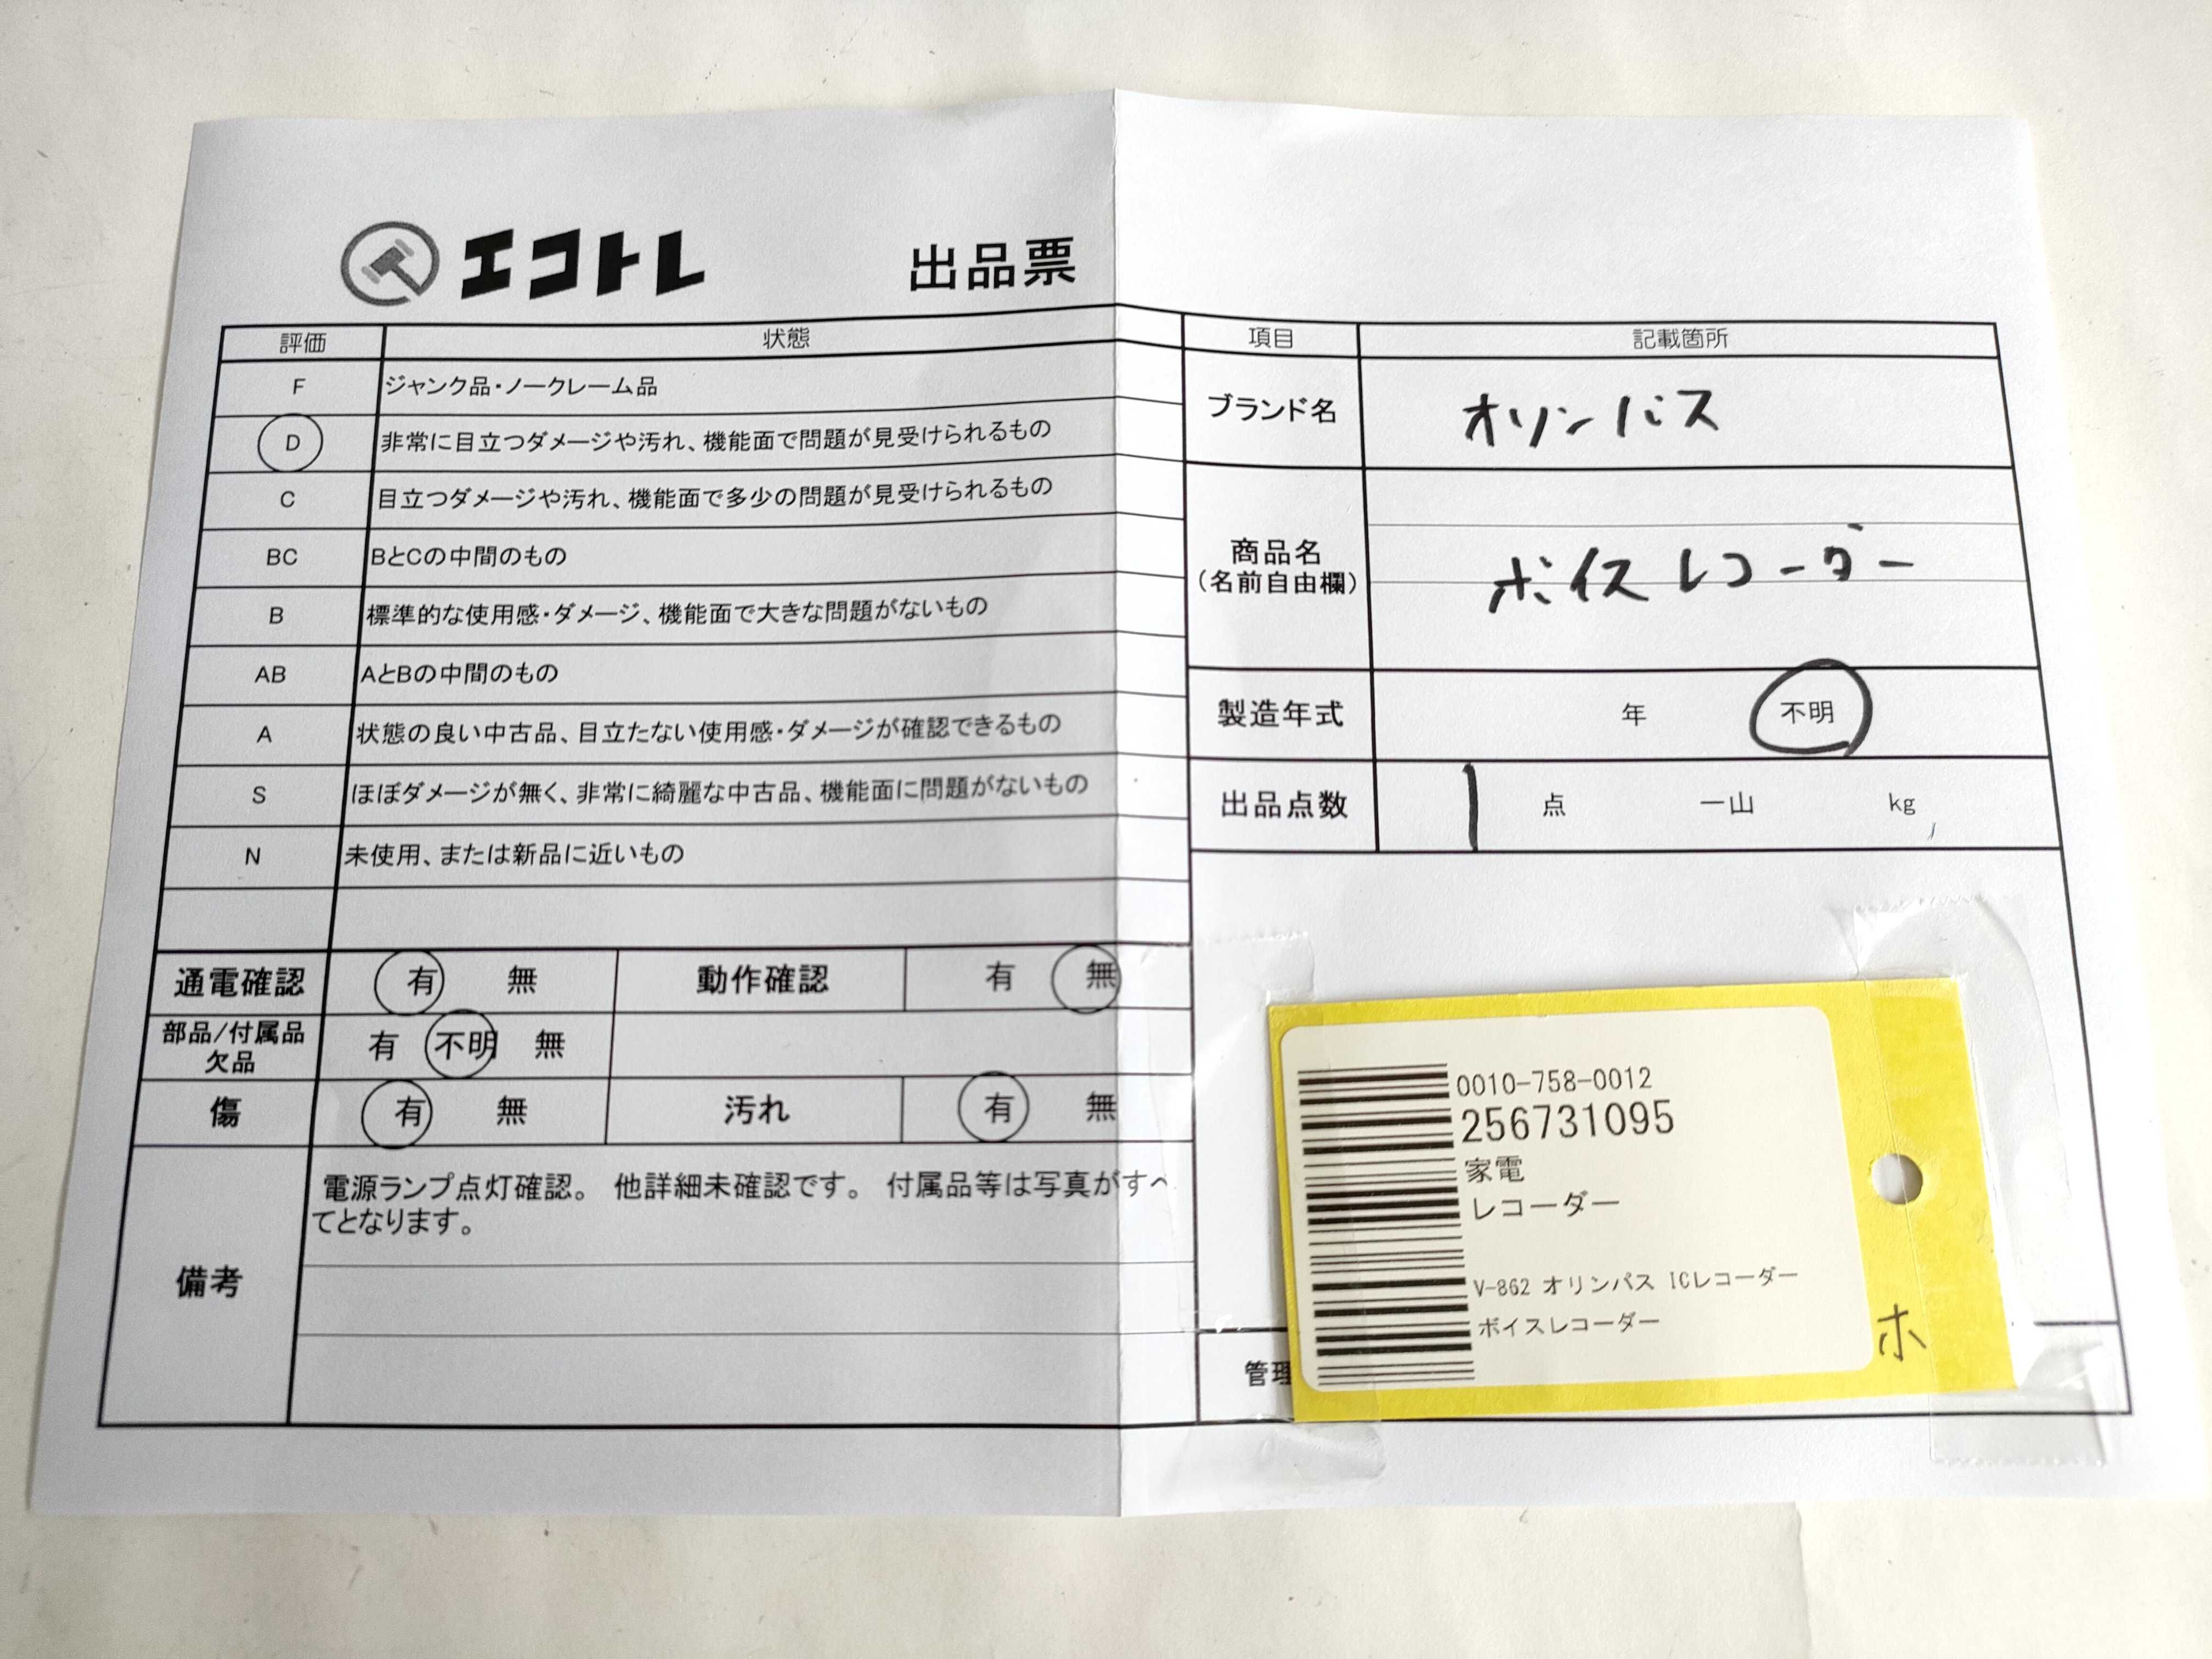 エコトレ 出品票
評価 状態
F ジャンク品・ノークレーム品
D 非常に目立つダメージや汚れ、機能面で問題が見受けられるもの
C 目立つダメージや汚れ、機能面で多少の問題が見受けられるもの
BC BとCの中間のもの
B 標準的な使用感・ダメージ、機能面で大きな問題がないもの
AB AとBの中間のもの
A 状態の良い中古品、目立たない使用感・ダメージが確認できるもの
S ほぼダメージが無く、非常に綺麗な中古品、機能面に問題がないもの
N 未使用、または新品に近いもの
通電確認 有 無 動作確認 有 無
部品/付属品
欠品 有 不明 無
傷 有 無 汚れ 有 無
備考
電源ランプ点灯確認。 他詳細未確認です。 付属品等は写真がすべ
てとなります。
項目 記載箇所
ブランド名 オリンパス
商品名
(名前自由欄) ボイスレコーダー
製造年式 年 不明
出品点数 1 点 一山 kg
管理
0010-758-0012
256731095
家電
レコーダー
V-862 オリンパス ICレコーダー
ボイスレコーダー
ホ